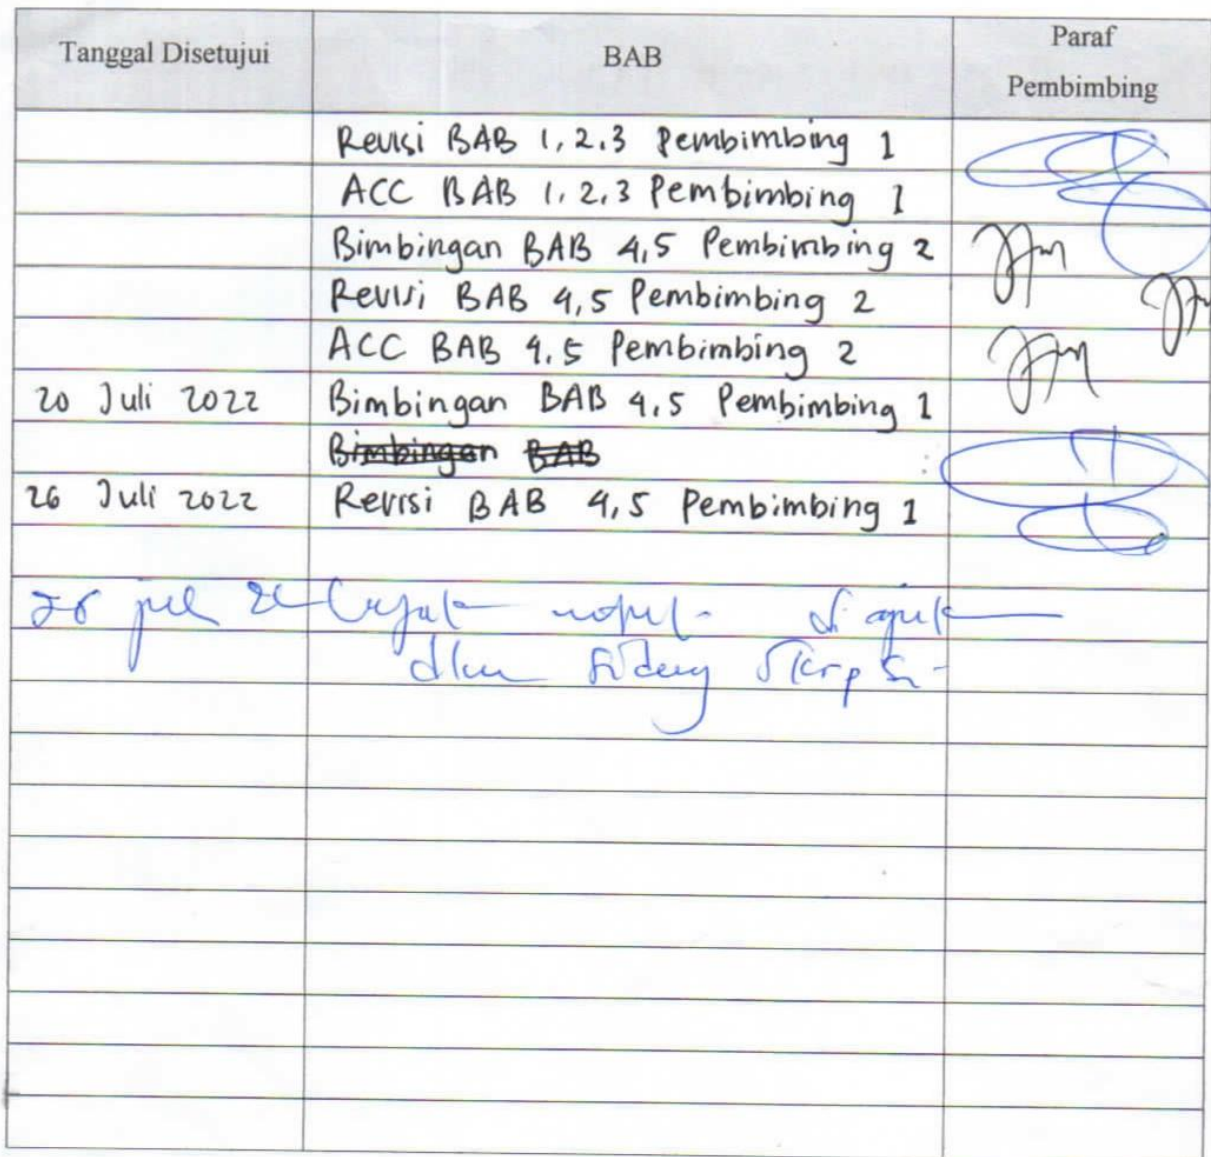 Tanggal Disetujui BAB Paraf Pembimbing
Revisi BAB 1,2,3 Pembimbing 1
ACC BAB 1,2,3 Pembimbing 1
Bimbingan BAB 4,5 Pembimbing 2
Revisi BAB 4,5 Pembimbing 2
ACC BAB 4,5 Pembimbing 2
20 Juli 2022 Bimbingan BAB 4,5 Pembimbing 1
Bimbingan BAB
26 Juli 2022 Revisi BAB 4,5 Pembimbing 1